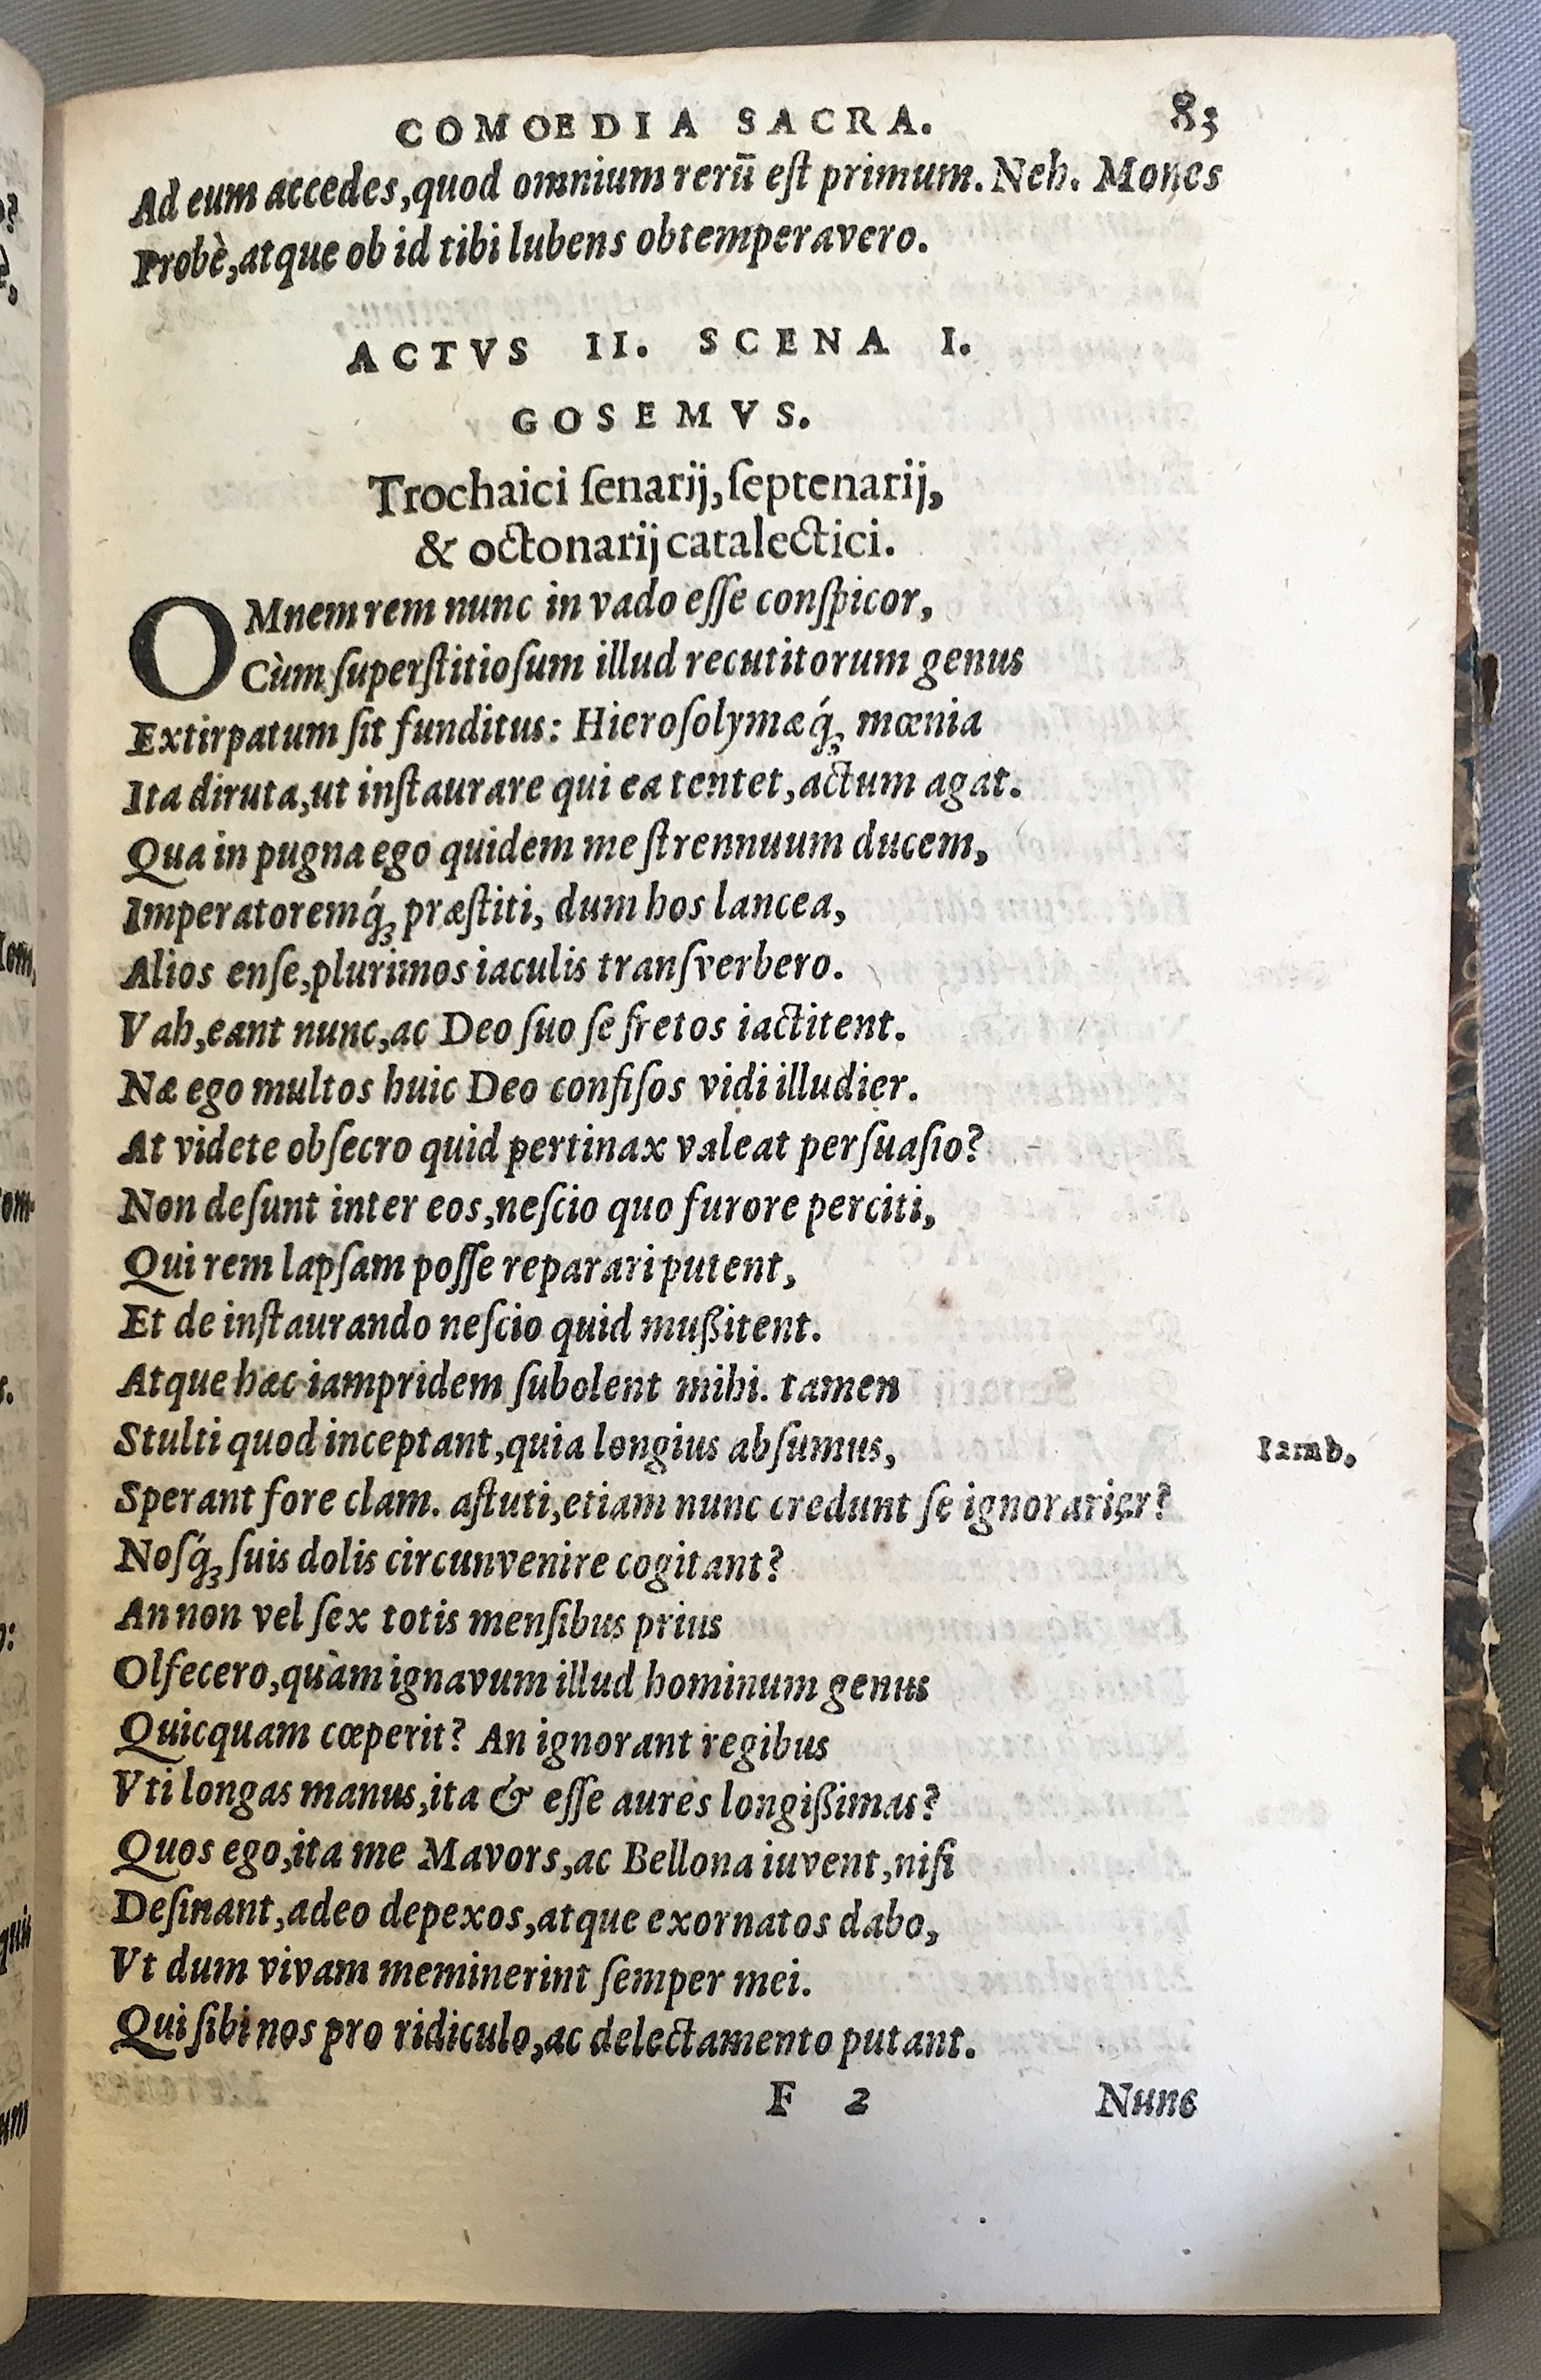 COMOEDIA SACRA. 83
Ad eum accedes, quod omnium rerū eſt primum. Neh. Mones
Probè, atque ob id tibi lubens obtemperavero.
ACTVS II. SCENA I.
GOSEMVS.
Trochaici ſenarij, ſeptenarij,
& octonarij catalectici.
OMnem rem nunc in vado eſſe conſpicor,
Cùm ſuperſtitioſum illud recutitorum genus
Extirpatum ſit funditus: Hieroſolymæq́ꝫ mœnia
Ita diruta, ut inſtaurare qui ea tentet, actum agat.
Qua in pugna ego quidem me ſtrennuum ducem,
Imperatoremq́ꝫ præſtiti, dum hos lancea,
Alios enſe, plurimos iaculis tranſverbero.
Vah, eant nunc, ac Deo ſuo ſe fretos iactitent.
Næ ego multos huic Deo confiſos vidi illudier.
At videte obſecro quid pertinax valeat perſuaſio?
Non deſunt inter eos, neſcio quo furore perciti,
Qui rem lapſam poſſe reparari putent,
Et de inſtaurando neſcio quid mußitent.
Atque hæc iampridem ſubolent mihi. tamen
Stulti quod inceptant, quia longius abſumus, Iamb.
Sperant fore clam. aſtuti, etiam nunc credunt ſe ignorarier?
Noſq́ꝫ ſuis dolis circunvenire cogitant?
An non vel ſex totis menſibus prius
Olfecero, quàm ignavum illud hominum genus
Quicquam cœperit? An ignorant regibus
Vti longas manus, ita & eſſe aures longißimas?
Quos ego, ita me Mavors, ac Bellona iuvent, niſi
Deſinant, adeo depexos, atque exornatos dabo,
Vt dum vivam meminerint ſemper mei.
Qui ſibi nos pro ridiculo, ac delectamento putant.
F 2 Nunc